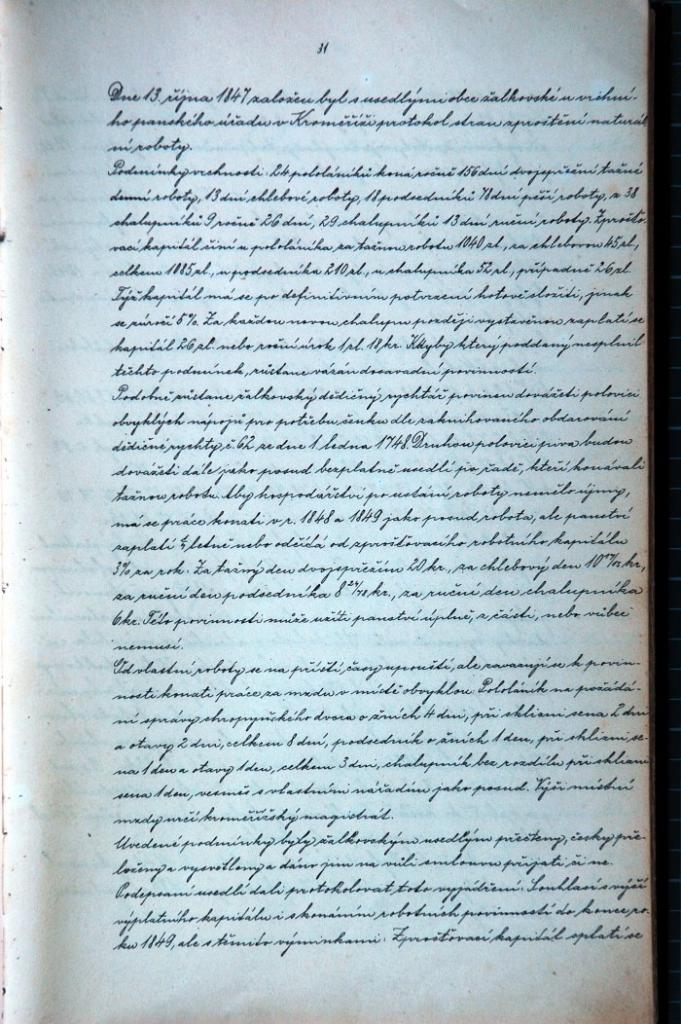 31
Dne 13. října 1847 založen byl s usedlými obce žalkovské u vrchní-
ho panského úřadu v Kroměříži protokol stran zproštění naturál
ní roboty.
Podmínky vrchnosti: 24 pololáníků koná ročně 156 dní dvojspřežní tažné
denní roboty, 13 dní chlebové roboty, 18 podsedníků 78 dní pěší roboty, z 38
chalupníků 9 ročně 26 dní, 29 chalupníků 13 dní ruční roboty. Zprošťo-
vací kapitál činí u pololáníka za tažnou robotu 1040 zl., za chlebovou 45 zl.,
celkem 1085 zl., u podsedníka 210 zl., u chalupníka 52 zl., případně 26 zl.
Týž kapitál má se po definitivním potvrzení hotově složiti, jinak
se zúročí 5%. Za každou novou chalupu později vystavěnou zaplatí se
kapitál 26 zl. nebo roční úrok 1 zl. 18 kr. Kdyby který poddaný nesplnil
těchto podmínek, zůstane vázán dosavadní povinností.
Podobně zůstane žalkovský dědičný rychtář povinen dovážeti polovici
obvyklých nápojů pro potřebu šenku dle zaknihovaného obdarování
dědičné rychty č. 62 ze dne 1. ledna 1748. Druhou polovici piva budou
dovážeti dále jako posud bezplatně usedlí po řadě, kteří konávali
tažnou robotu. Aby hospodářství po ustání roboty nemělo újmy,
má se práce konati v r. 1848 a 1849 jako posud robota, ale panství
zaplatí letně nebo odčítá od zprošťovacího robotního kapitálu
3% za rok. Za tažný den dvojspřežím 20 kr., za chlebový den kr.,
za ruční den podsedníka kr., za ruční den chalupníka
6 kr. Této povinnosti může užíti panství úplně, z části, nebo vůbec
nemusí.
Od vlastní roboty se na příští časy upouští, ale zavazují se k povin-
nosti konati práce za mzdu v místě obvyklou. Pololáník na požádá-
ní správy chropyňského dvora o žních 4 dni, při sklizni sena 2 dni
a otavy 2 dni, celkem 8 dní, podsedník o žních 1 den, při sklizni se-
na 1 den a otavy 1 den, celkem 3 dni, chalupník bez rozdílu při sklizni
sena 1 den, vesměs s vlastním nářadím jako posud. Výši místní
mzdy určí kroměřížský magistrát.
Uvedené podmínky byly žalkovským usedlým přečteny, česky pře-
loženy a vysvětleny a dáno jim na vůli smlouvu přijati či ne.
Podepsaní usedlí dali protokolovat toto vyjádření: Souhlasí s výší
výplatního kapitálu i s konáním robotních povinností do konce ro-
ku 1849, ale s těmito výminkami: Zprošťovací kapitál splatí se